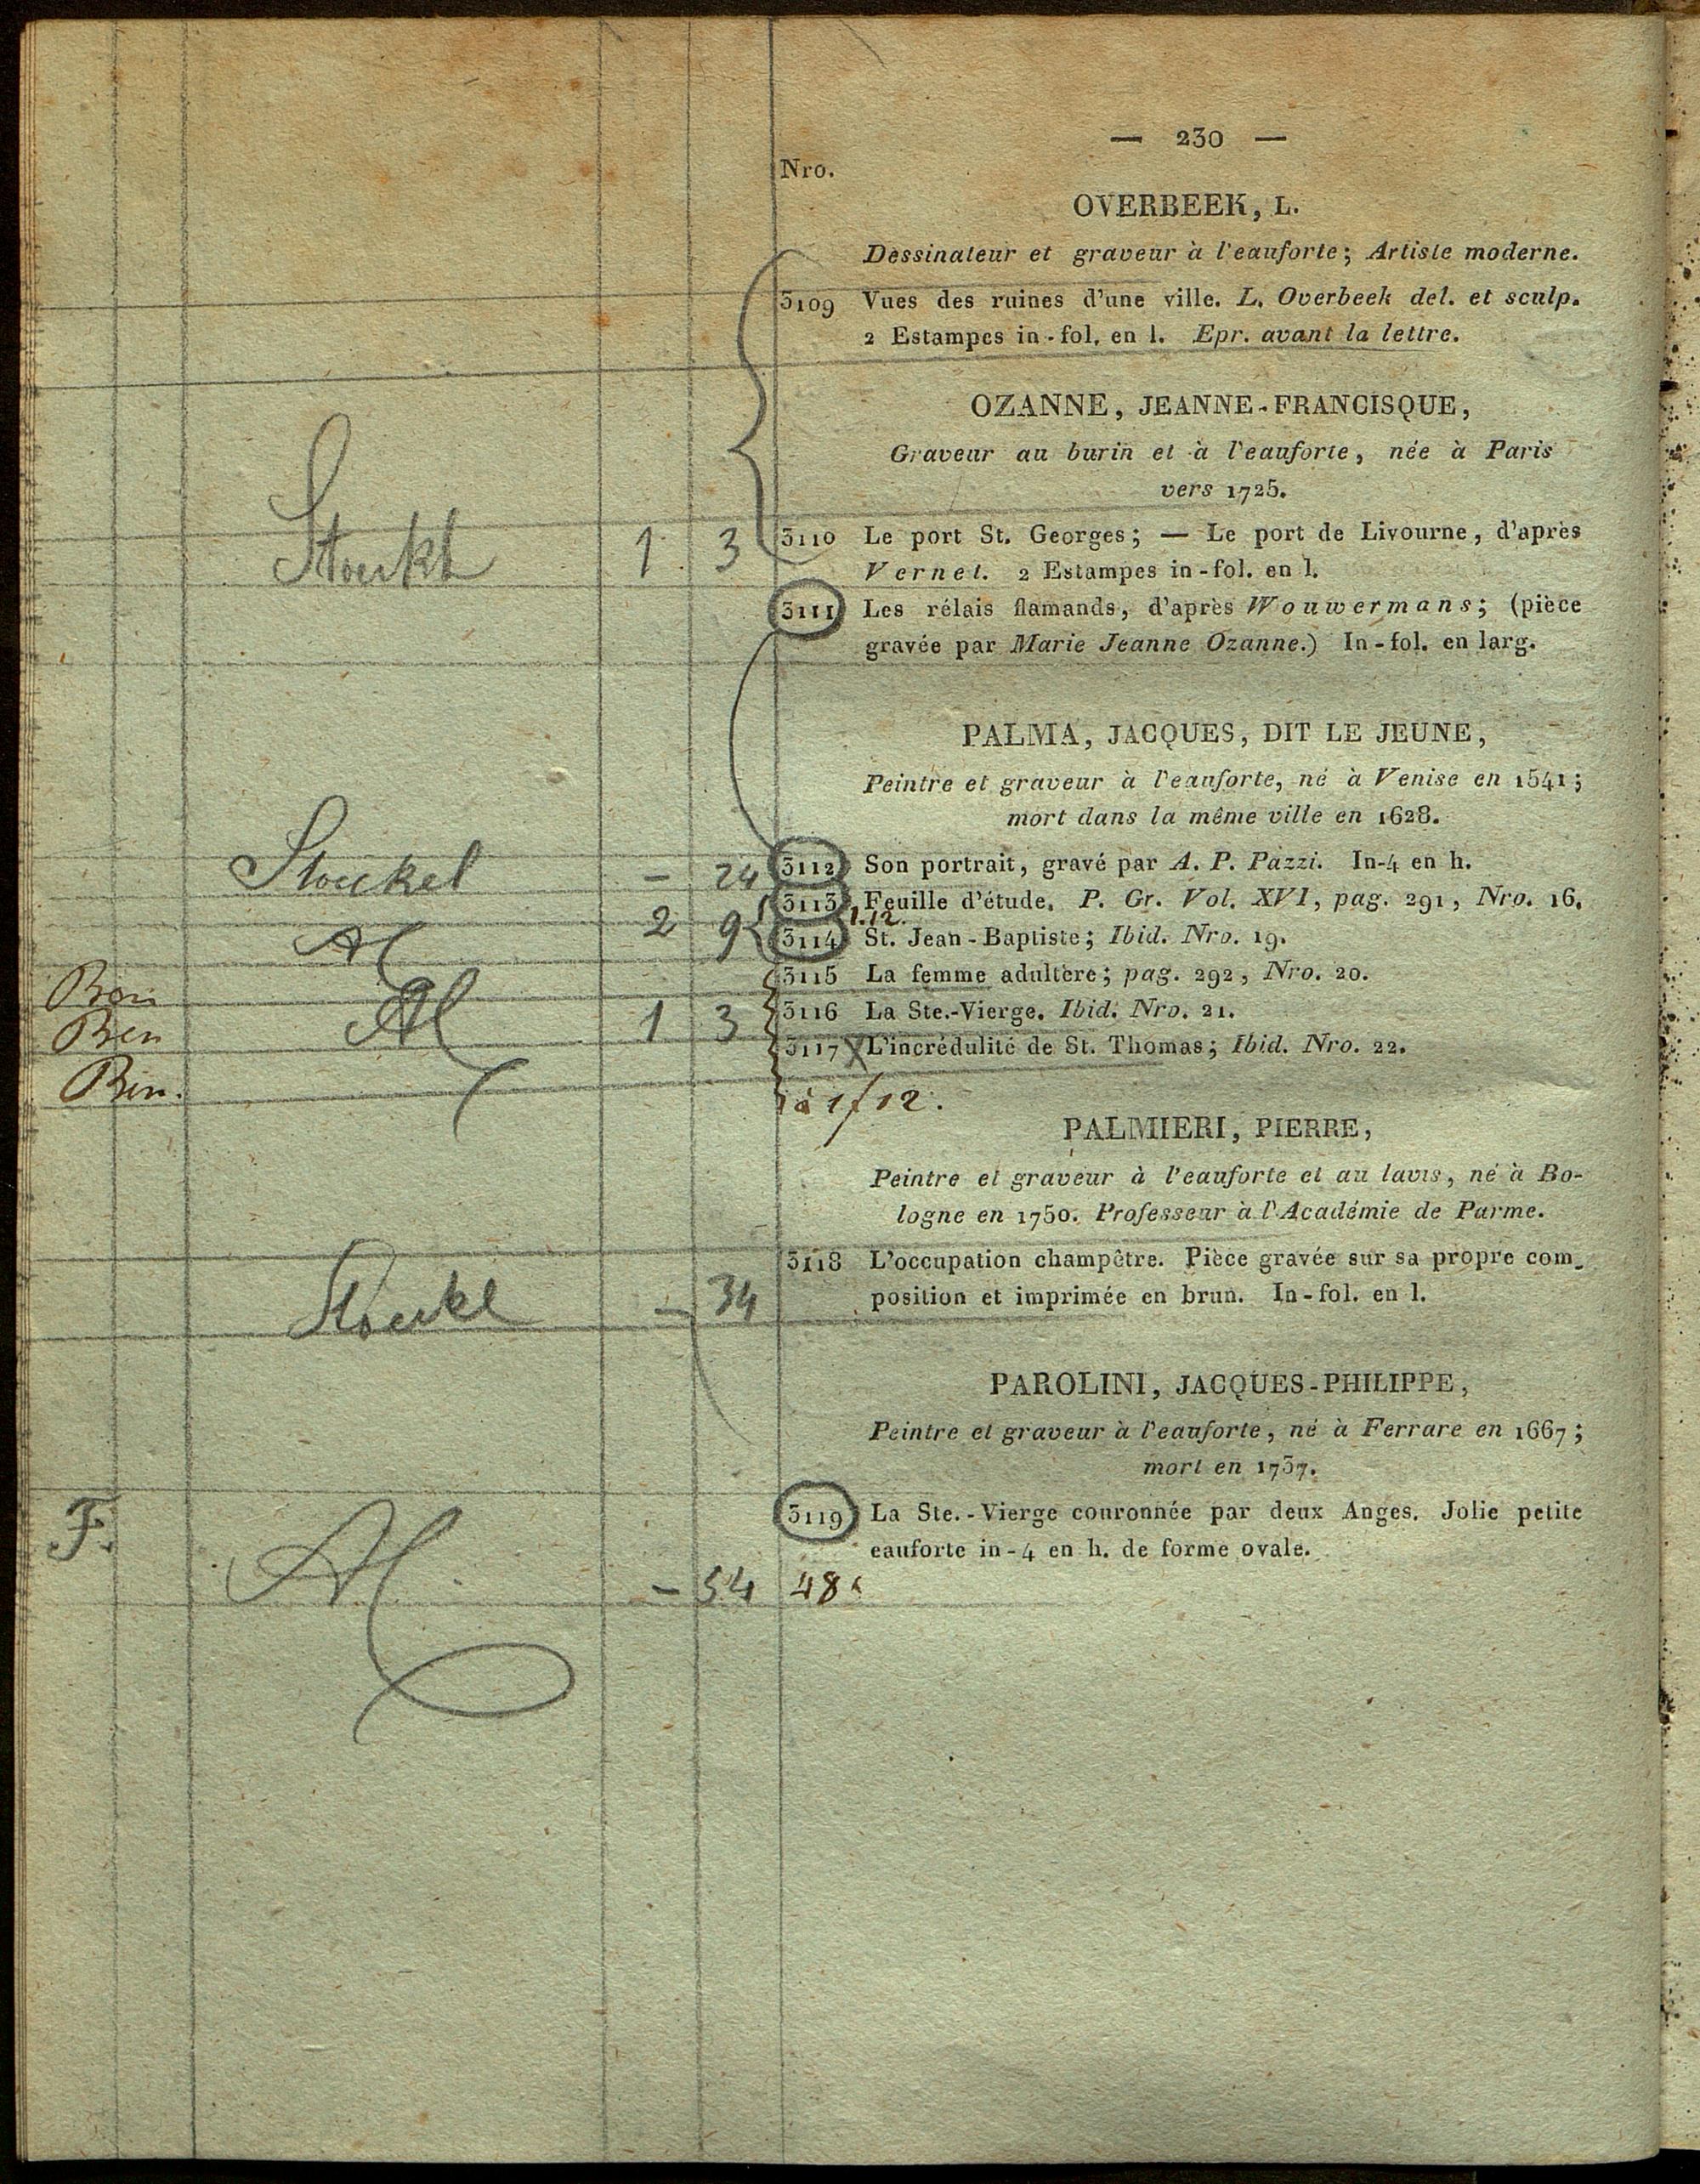 — 230 —
Nro.
OVERBEEK, L.
Dessinateur et graveur à l'eauforte; Artiste moderne.
3109 Vues des ruines d'une ville. L. Overbeek del. et sculp.
2 Estampes in-fol. en l. Epr. avant la lettre.
OZANNE, JEANNE-FRANCISQUE,
Graveur au burin et à l'eauforte, née à Paris
vers 1725.
1 3 3110 Le port St. Georges; — Le port de Livourne, d'après
Vernet. 2 Estampes in-fol. en l.
3111 Les rélais flamands, d'après Wouwermans; (pièce
gravée par Marie Jeanne Ozanne.) In-fol. en larg.
PALMA, JACQUES, DIT LE JEUNE,
Peintre et graveur à l'eauforte, né à Venise en 1541;
mort dans la même ville en 1628.
Stoeckel — 24 3112 Son portrait, gravé par A. P. Pazzi. In-4 en h.
3113 Feuille d'étude. P. Gr. Vol. XVI, pag. 291, Nro. 16.
2 9 1.12.
3114 St. Jean-Baptiste; Ibid. Nro. 19.
3115 La femme adultère; pag. 292, Nro. 20.
Ben 1 3 3116 La Ste.-Vierge. Ibid. Nro. 21.
3117 X L'incrédulité de St. Thomas; Ibid. Nro. 22.
Ben. à 1f 12.
PALMIERI, PIERRE,
Peintre et graveur à l'eauforte et au lavis, né à Bo-
logne en 1750. Professeur à l'Académie de Parme.
3118 L'occupation champêtre. Pièce gravée sur sa propre com-
Stoeckl — 34 position et imprimée en brun. In-fol. en l.
PAROLINI, JACQUES-PHILIPPE,
Peintre et graveur à l'eauforte, né à Ferrare en 1667;
mort en 1737.
F. 3119 La Ste.-Vierge couronnée par deux Anges. Jolie petite
eauforte in-4 en h. de forme ovale.
— 54 48